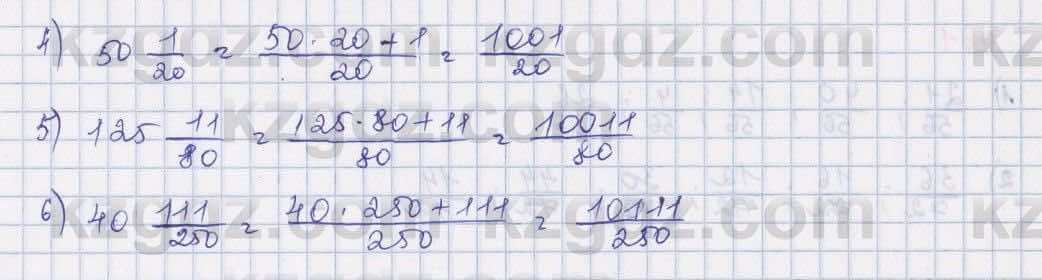 4) 50 1/20 = 50·20+1/20 = 1001/20
5) 125 11/80 = 125·80+11/80 = 10011/80
6) 40 111/250 = 40·250+111/250 = 10111/250
kzgdz.com